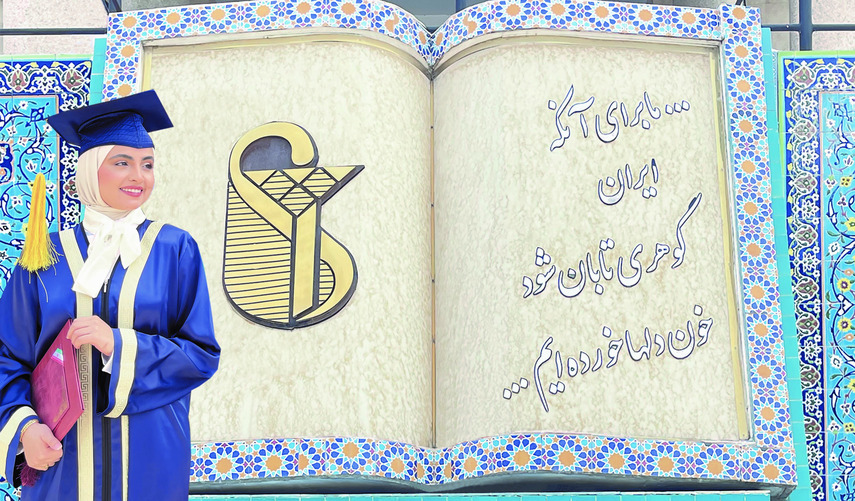 ... ما برای آنکه
ایران
گوهری تابان شود
خون دلها خورده ایم ...